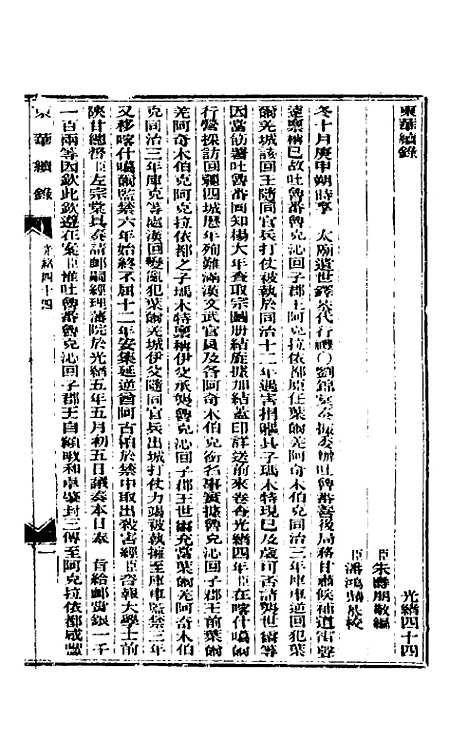 東華續錄 光緒四十四
臣朱壽朋敬編
臣潘鴻鼎恭校
冬十月庚申朔時享 太廟遣世鐸恭代行禮〇劉錦棠奏據委辦吐魯番善後局務甘肅候補道雷聲
遠稟稱已故吐魯番魯克沁回子郡王阿克拉依都原任葉爾羌阿奇木伯克同治三年庫車逆回犯葉
爾羌城該回王隨同官兵打仗被執於同治十二年遇害捐軀其子瑪木特現已及歲可否請襲世爵等
因當飭署吐魯番同知楊大年查取宗圖冊結旋據加結蓋印詳送前來卷查光緒四年臣在喀什噶爾
行營採訪回疆四城歷年殉難滿漢文武官員及各阿奇木伯克銜名事實據魯克沁回子郡王前葉爾
羌阿奇木伯克阿克拉依都之子瑪木特稟稱伊父承襲魯克沁回子郡王世爵充當葉爾羌阿奇木伯
克同治三年庫克等處漢回變亂犯葉爾羌城伊父隨同官兵出城打仗力竭被執擁至庫車監禁三年
又移喀什噶爾監禁六年始終不屈十二年安集延逆酋阿古柏於禁中取出殺害經臣咨報大學士前
陝甘總督臣左宗棠具奏請卹嗣經理藩院於光緒五年五月初五日議奏本日奉 旨給卹賞銀一千
一百兩等因欽此欽遵在案臣惟吐魯番魯克沁回子郡王自額敏和卓肇封三傳至阿克拉依都咸豐
東華續錄 光緒四十四 一